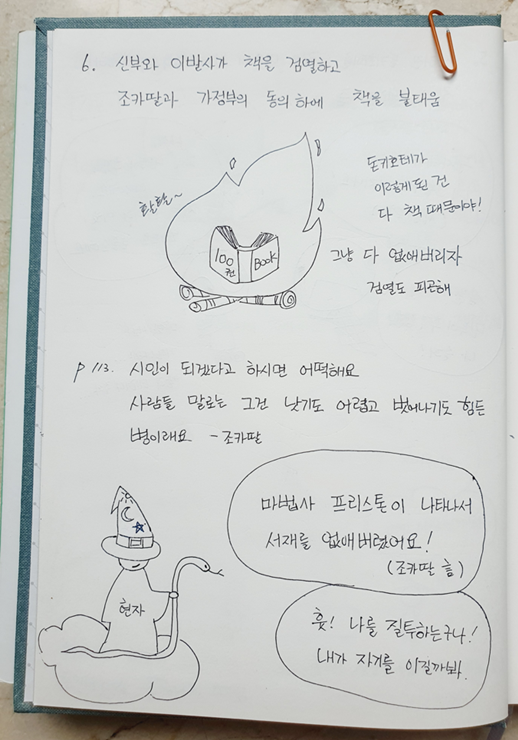 6. 신부와 이발사가 책을 검열하고
조카딸과 가정부의 동의하에 책을 불태움
활활~
돈키호테가
이렇게 된 건
다 책 때문이야!
100권
BOOK
그냥 다 없애버리자
검열도 피곤해
p 113. 시인이 되겠다고 하시면 어떡해요
사람들 말로는 그건 낫기도 어렵고 벗어나기도 힘든
병이래요 - 조카딸
마법사 프리스톤이 나타나서
서재를 없애버렸어요!
(조카딸 흠)
현자
흥! 나를 질투하는구나!
내가 자기를 이길까봐.